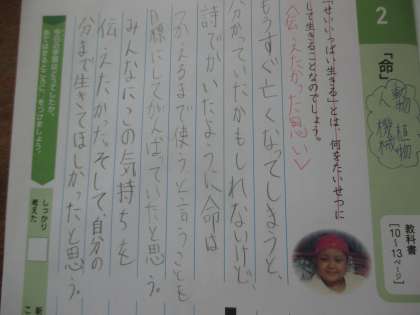 2
「命」
動物
植物
人
機械
教科書
[10〜13ページ]
「せいいっぱい生きる」とは、何をたいせつに
して生きることなのでしょう。
〈伝えたかった思い〉
もうすぐ亡くなってしまうと、
分かっていたかもしれないけど、
詩でかいたように命は
つかえるまで使うと言うことを
目標にしてがんばっていたと思う。
みんなにこの気持ちを
伝えたかった。そして、自分の
分まで生きてほしかったと思う。
しっかり
考えた